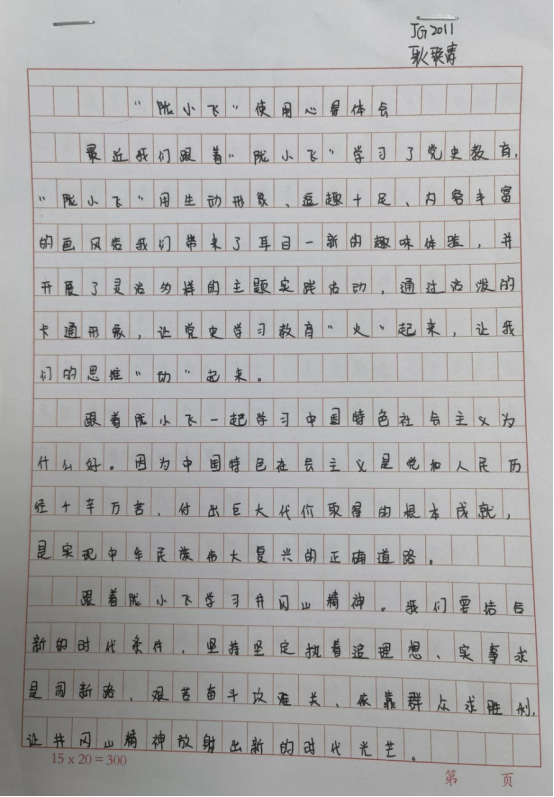 JG2011
耿
"陇小飞"使用心得体会
最近我们跟着"陇小飞"学习了党史教育,
"陇小飞"用生动形象、逗趣十足、内容丰富
的画风给我们带来了耳目一新的趣味体验,并
开展了灵活多样的主题实践活动,通过活泼的
卡通形象,让党史学习教育"火"起来,让我
们的思维"动"起来。
跟着陇小飞一起学习中国特色社会主义为
什么好。因为中国特色社会主义是党和人民历
经千辛万苦、付出巨大代价取得的根本成就,
是实现中华民族伟大复兴的正确道路。
跟着陇小飞学习井冈山精神。我们要结合
新的时代条件,坚持坚定执着追理想、实事求
是闯新路、艰苦奋斗攻难关、依靠群众求胜利,
让井冈山精神放射出新的时代光芒。
15 x 20 = 300
第 页